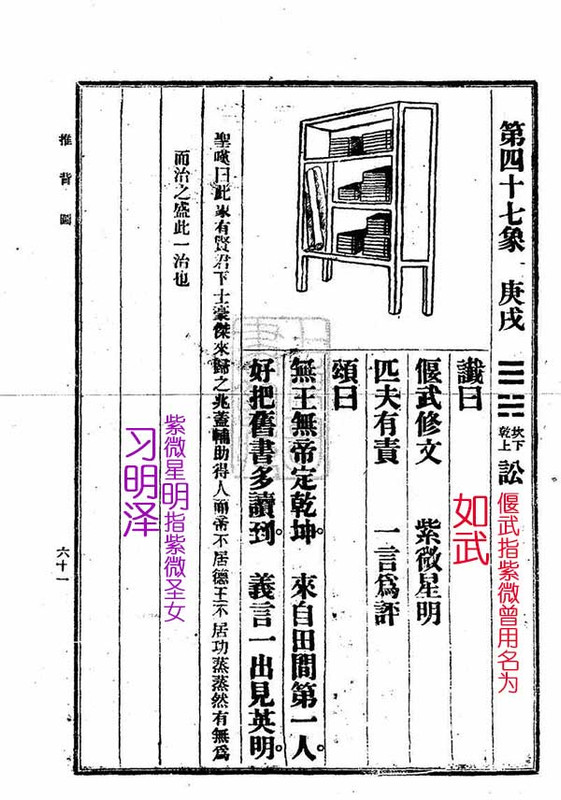 第四十七象 庚戌 坎下乾上 訟
讖曰
偃武修文 紫微星明
匹夫有責 一言為評
頌曰
無王無帝定乾坤。 來自田間第一人。
好把舊書多讀到。 義言一出見英明。
聖嘆曰此象有賢君下士豪傑來歸之兆蓋輔助得人而帝不居德王不居功蒸蒸然有無為
而治之盛此一治也
推背圖
六十一
偃武指紫微曾用名为
如武
紫微星明指紫微圣女
习明泽